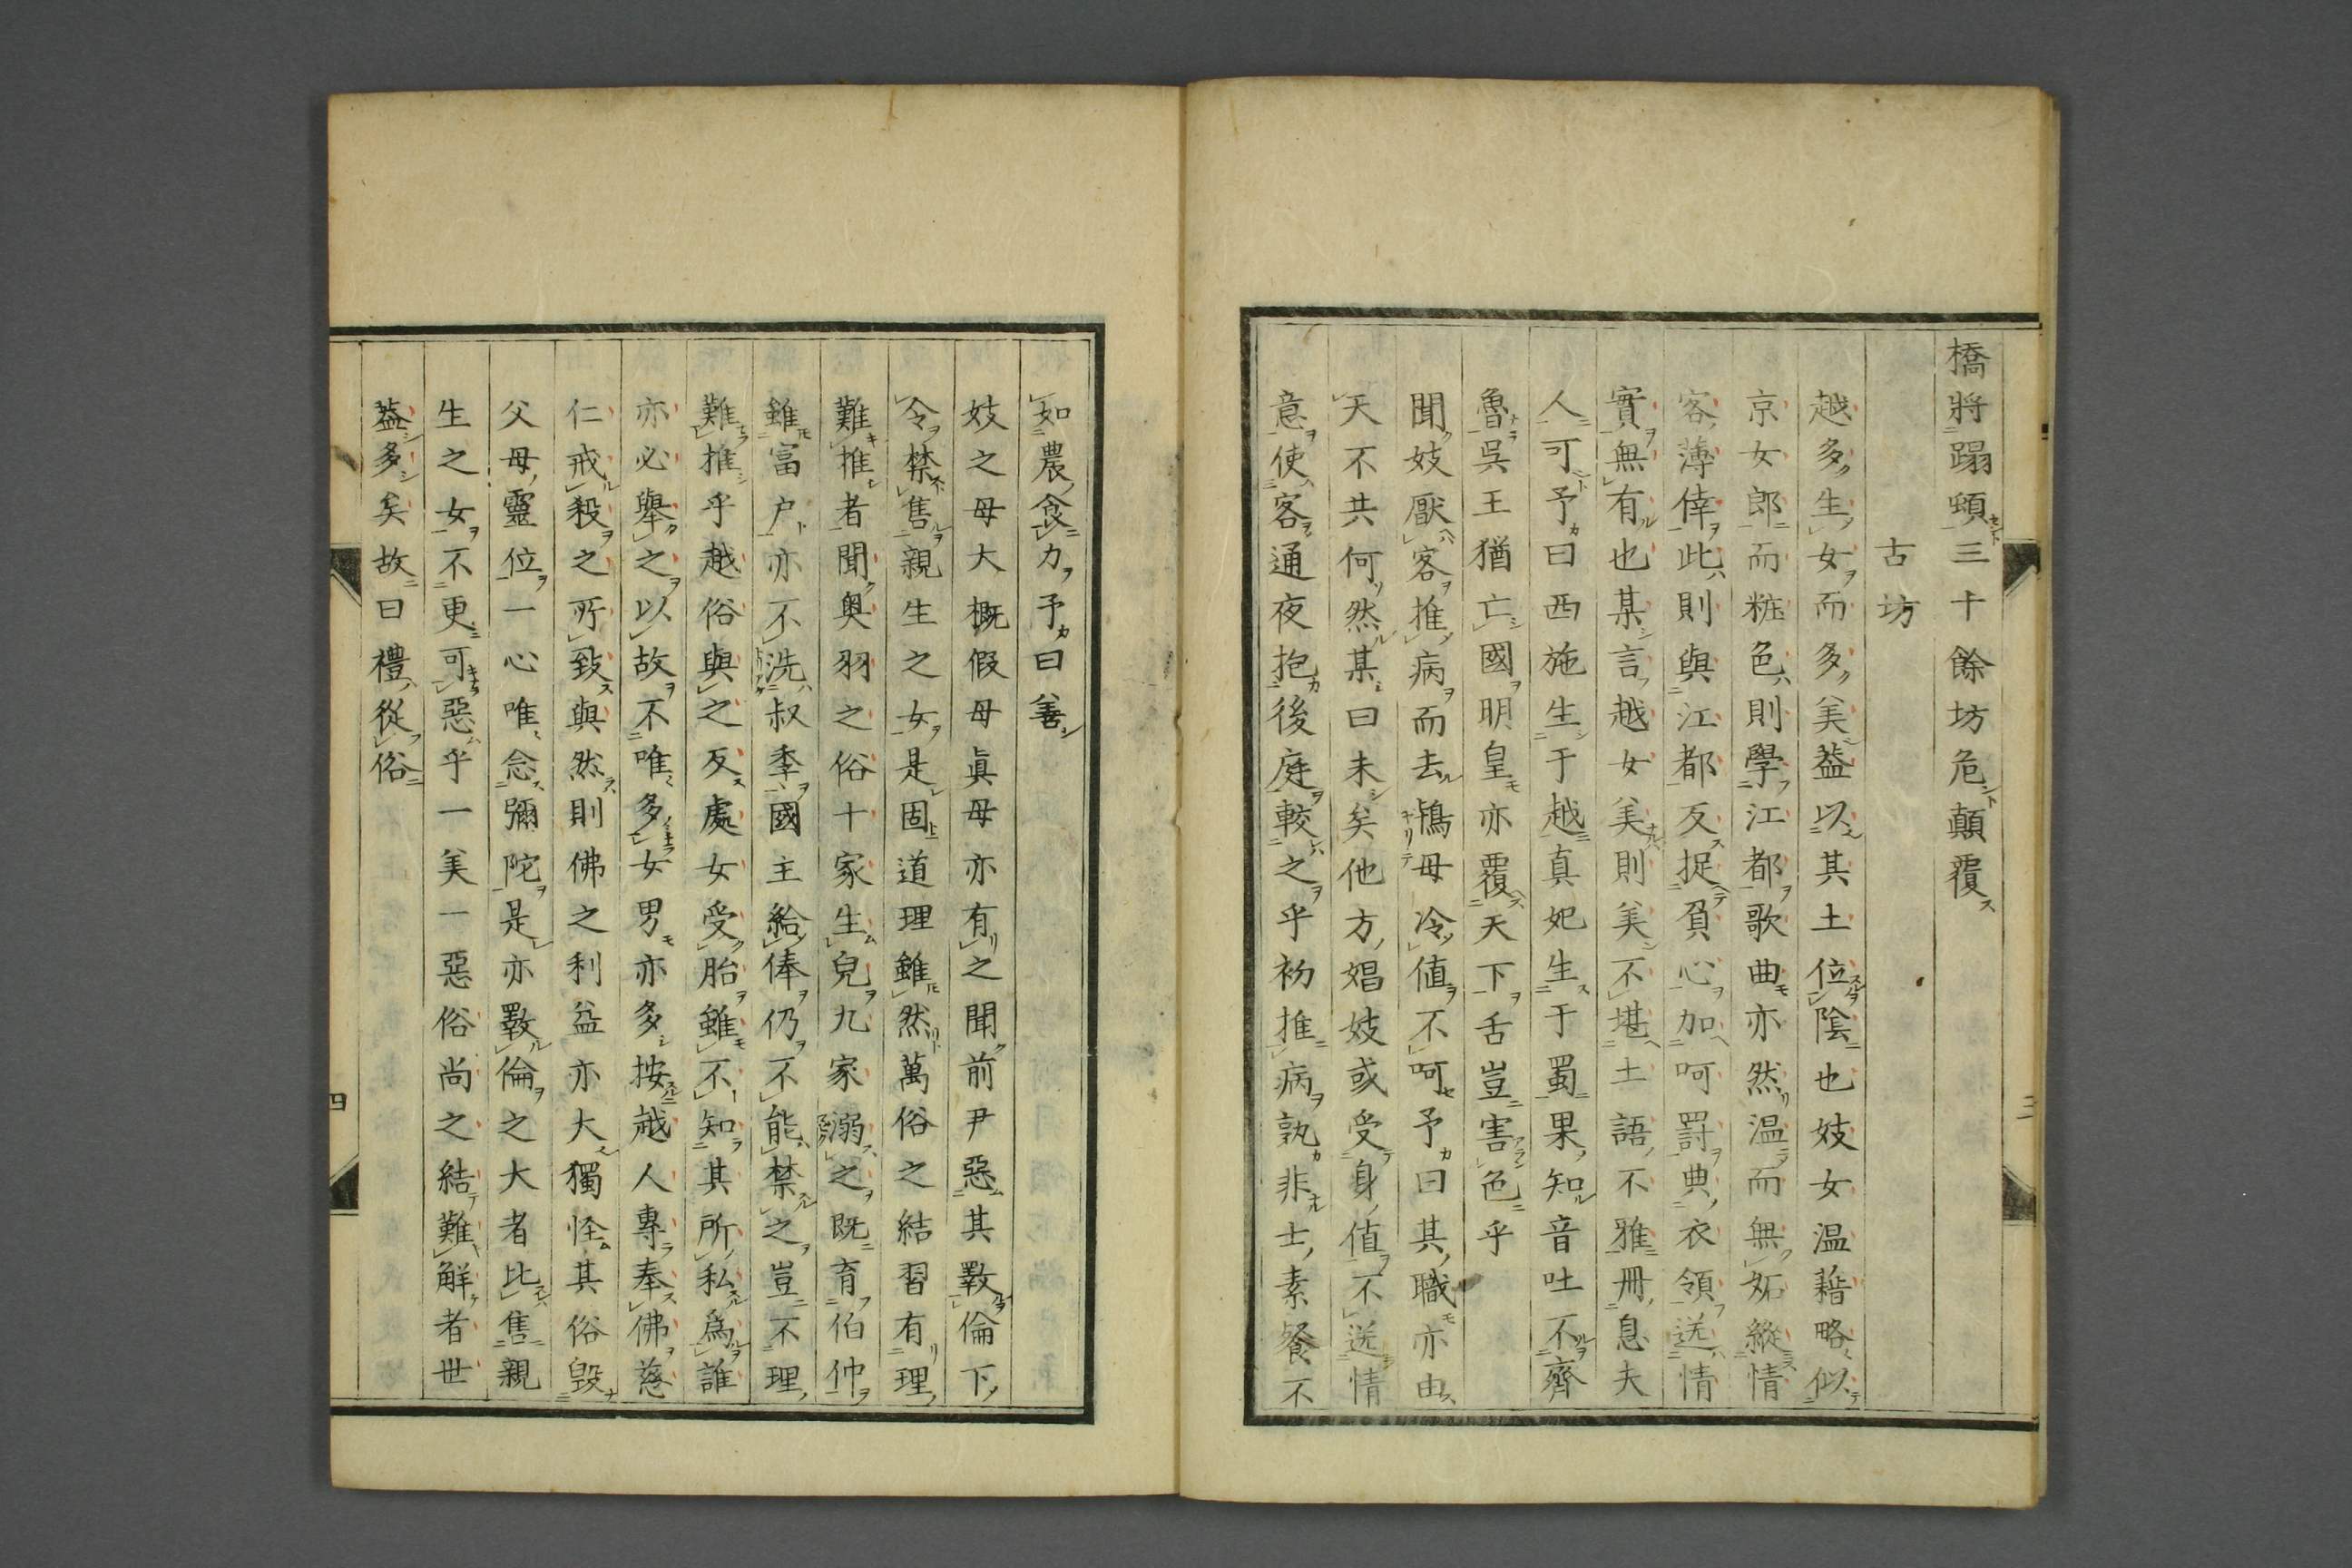 橋將蹋蝢三十餘坊危顛覆
古坊
越多生女而多美蓋以其土位陰也妓女温藉略似
京女郎而粧色則學江都歌曲亦然温而無妬縱情
客薄倖此則與江都反捉負心加呵罸典衣領送情
實無有也某言越女美則美不堪土語不雅冊息夫
人可予曰西施生于越真妃生于蜀果知音吐不齊
魯呉王猶亡國明皇亦覆天下舌豈害色乎
聞妓厭客推病而去鴇母冷値不呵予曰其職亦由
天不共何然某曰未矣他方娼妓或受身値不送情
意使客通夜抱後庭較之乎初推病孰非士素餐不
三
如農食力予曰善
妓之母大概假母眞母亦有之聞前尹惡其斁倫下
令禁售親生之女是固道理雖然萬俗之結習有理
難推者聞奥羽之俗十家生兒九家溺之既育伯仲
雖富户亦不洗叔季國主給俸仍不能禁之豈不理
難推乎越俗與之反處女受胎雖不知其所私爲誰
亦必舉之以故不唯多女男亦多按越人專奉佛慈
仁戒殺之所致與然則佛之利益亦大獨怪其俗毀
父母靈位一心唯念彌陀是亦斁倫之大者比售親
生之女不更可惡乎一美一惡俗尚之結難解者世
蓋多矣故曰禮從俗
四